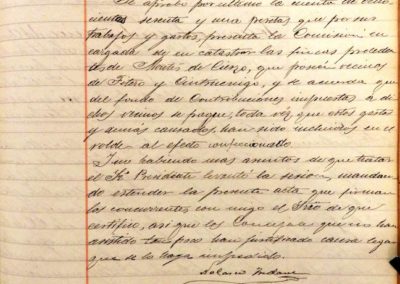 Se aprobó por ultimo la cuenta de
cientas sesenta y una pesetas que por sus
trabajos y gastos, presenta la Comision en
cargada de en catastrar las fincas proceden
tes de Montes de Cierzo, que poseen vecinos
de Fitero y Cintruenigo, y se acuerda que
del fondo de Contribuciones impuestas a
vecinos se pague, toda vez que estos gastos
y demás causados, han sido incluidos en el
rolde al efecto confeccionado.
Y no habiendo mas asuntos de que tratar
el Sr. Presidente levantó la sesion, mandan
do estender la presente acta que firman
los concurrentes, con migo el Srio de que
certifico, así que los Concejales que no han
asistido han justificado causa
que se lo haya impedido.